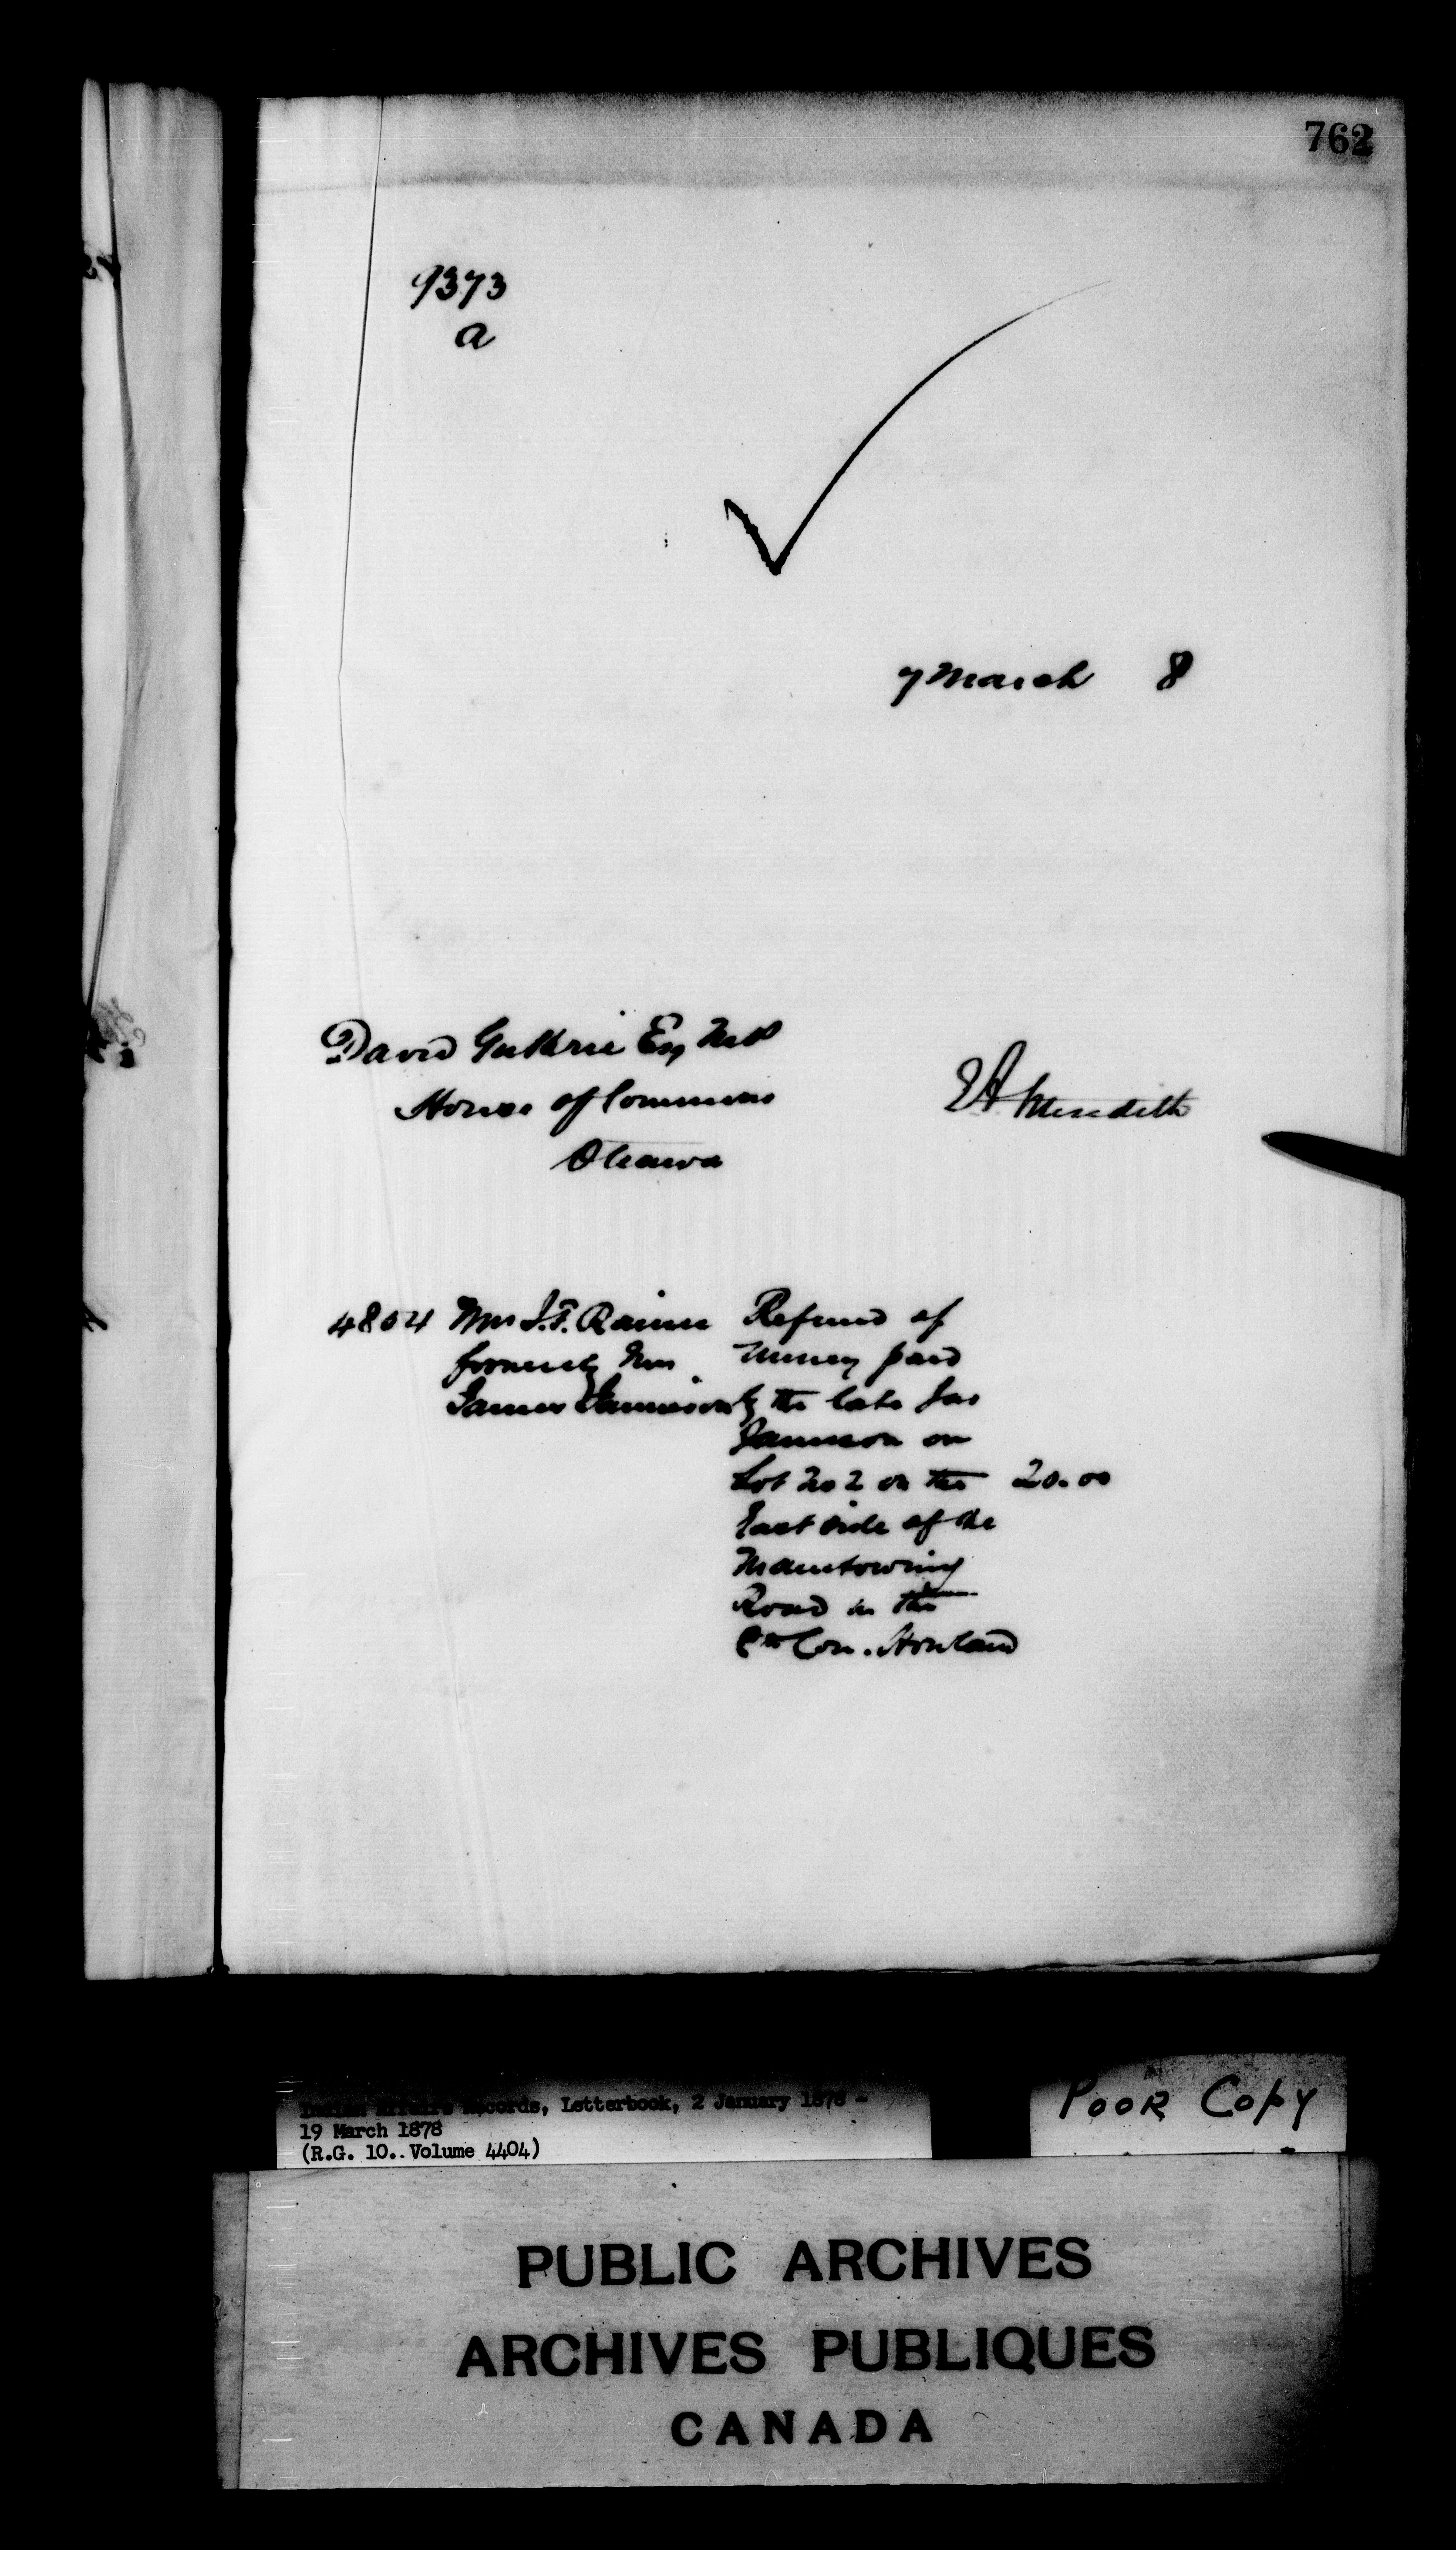 762
9373
a
7 March 8
David Guthrie Esq MP
House of Commons
Ottawa
EA Meredith
4804 Mrs J.T. Rainer Refund of
formerly Mrs money paid
James Jamieson by the late Jas
Jamieson on
Lot No 2 on the 20.00
East side of the
Manitowing
Road in the
Con. Howland
Indian Affairs Records, Letterbook, 2 January 1878 -
19 March 1878
(R.G. 10. Volume 4404)
POOR COPY
PUBLIC ARCHIVES
ARCHIVES PUBLIQUES
CANADA